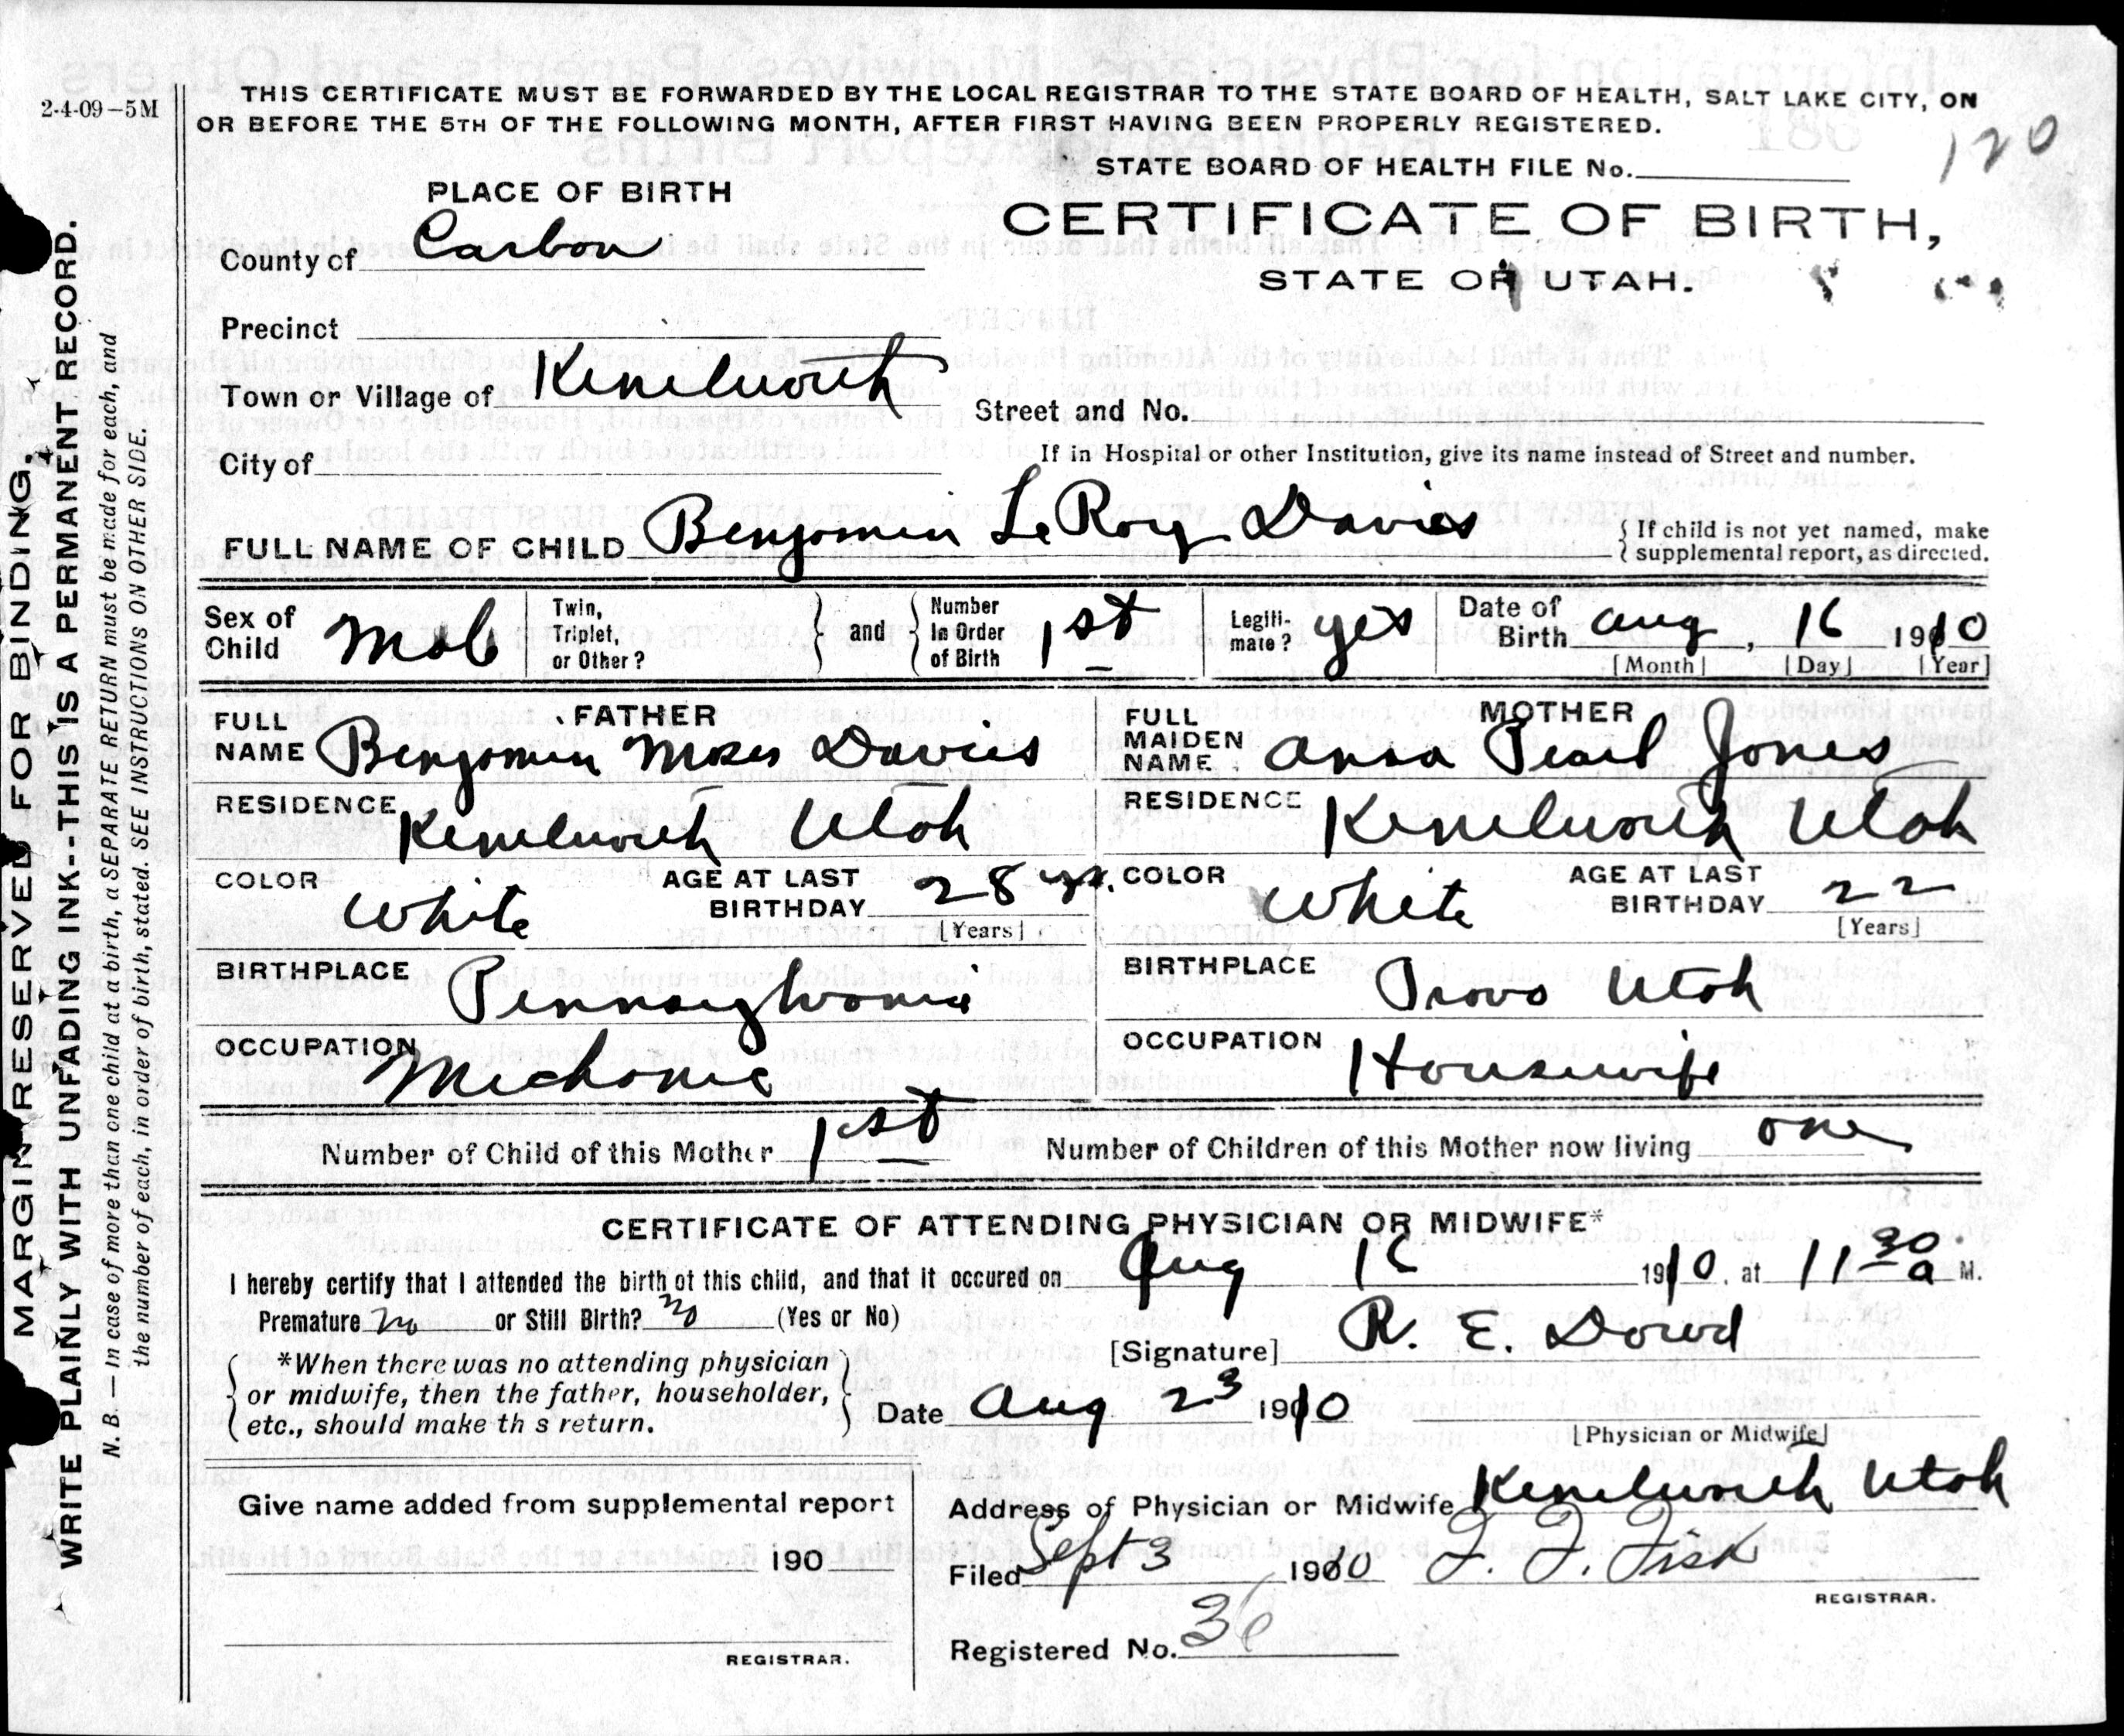 2-4-09-5M
THIS CERTIFICATE MUST BE FORWARDED BY THE LOCAL REGISTRAR TO THE STATE BOARD OF HEALTH, SALT LAKE CITY, ON
OR BEFORE THE 5TH OF THE FOLLOWING MONTH, AFTER FIRST HAVING BEEN PROPERLY REGISTERED.
120
STATE BOARD OF HEALTH FILE No.
PLACE OF BIRTH
CERTIFICATE OF BIRTH,
STATE OF UTAH.
County of Carbon
Precinct
Town or Village of Kenilworth
Street and No.
City of
If in Hospital or other Institution, give its name instead of Street and number.
FULL NAME OF CHILD Benjamin LeRoy Davies
{ If child is not yet named, make
{ supplemental report, as directed.
Sex of Child Male
Twin, Triplet, or Other?
and
Number In Order of Birth 1st
Legiti-mate? yes
Date of Birth Aug, 16 1910
[Month] [Day] [Year]
FATHER
FULL NAME Benjamin Moses Davies
RESIDENCE Kenilworth Utah
COLOR White
AGE AT LAST BIRTHDAY 28 yr.
[Years]
BIRTHPLACE Pennsylvania
OCCUPATION Mechanic
MOTHER
FULL MAIDEN NAME Anna Pearl Jones
RESIDENCE Kenilworth Utah
COLOR White
AGE AT LAST BIRTHDAY 22
[Years]
BIRTHPLACE Provo Utah
OCCUPATION Housewife
Number of Child of this Mother 1st
Number of Children of this Mother now living one
CERTIFICATE OF ATTENDING PHYSICIAN OR MIDWIFE*
I hereby certify that I attended the birth of this child, and that it occured on Aug 16 1910, at 11 30 a M.
Premature no or Still Birth? no (Yes or No)
[Signature] R. E. Dowd
*When there was no attending physician
or midwife, then the father, householder,
etc., should make th s return.
Date Aug 23 1910
[Physician or Midwife]
Give name added from supplemental report
190
REGISTRAR.
Address of Physician or Midwife Kenilworth Utah
Filed Sept 3 1910 F. F. Fisk
REGISTRAR.
Registered No. 36
MARGIN RESERVED FOR BINDING.
WRITE PLAINLY WITH UNFADING INK--THIS IS A PERMANENT RECORD.
N. B.—In case of more than one child at a birth, a SEPARATE RETURN must be made for each, and
the number of each, in order of birth, stated. SEE INSTRUCTIONS ON OTHER SIDE.